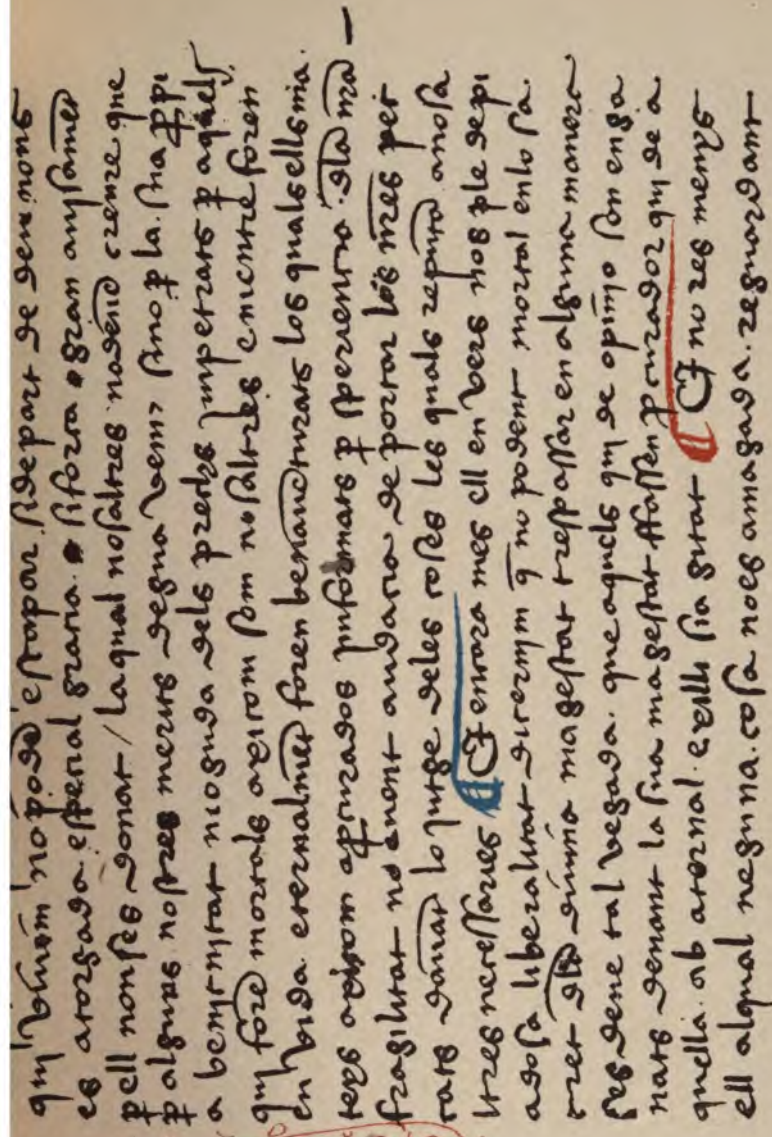 qui viuim no podē estapar sidepart de deu nons
es atorgada espeçial graçia e siforça e gran auysamēt
p̱ ell nonses donat / laqual nosaltres nodeuē creure que
p̱ alguns nostres merits degua venir sino p̱ la sua p̱pi
a benignitat moguda dels prechs impetrats p̱ aquels
qui forē mortals axicom som nosaltres e mentre foren
en vida eternalmēt foren benauēturats los quals ells ma
teys axicom aprouados informats p̱ speriençia dla nr̄a
fragilitat no auent audaçia de portar los nr̄es pre
cats dauāt lo jutge deles coses les quals reputa anosa
ltres neçessaries ¶ E encara mes ell en vers nos ple de pi
adosa liberalitat q̄ no podent mortal en lo sa
cret dla diuina magestat trespassar en alguna manera
ses deue tal vegada. que aquels qui de opinio son enga
nats denant la sua magestat ffassen p̱curador qui de a
quella. ab aternal exilli sia gitat ¶ E no res menys
ell alqual neguna. cosa noes amagada. reguardant